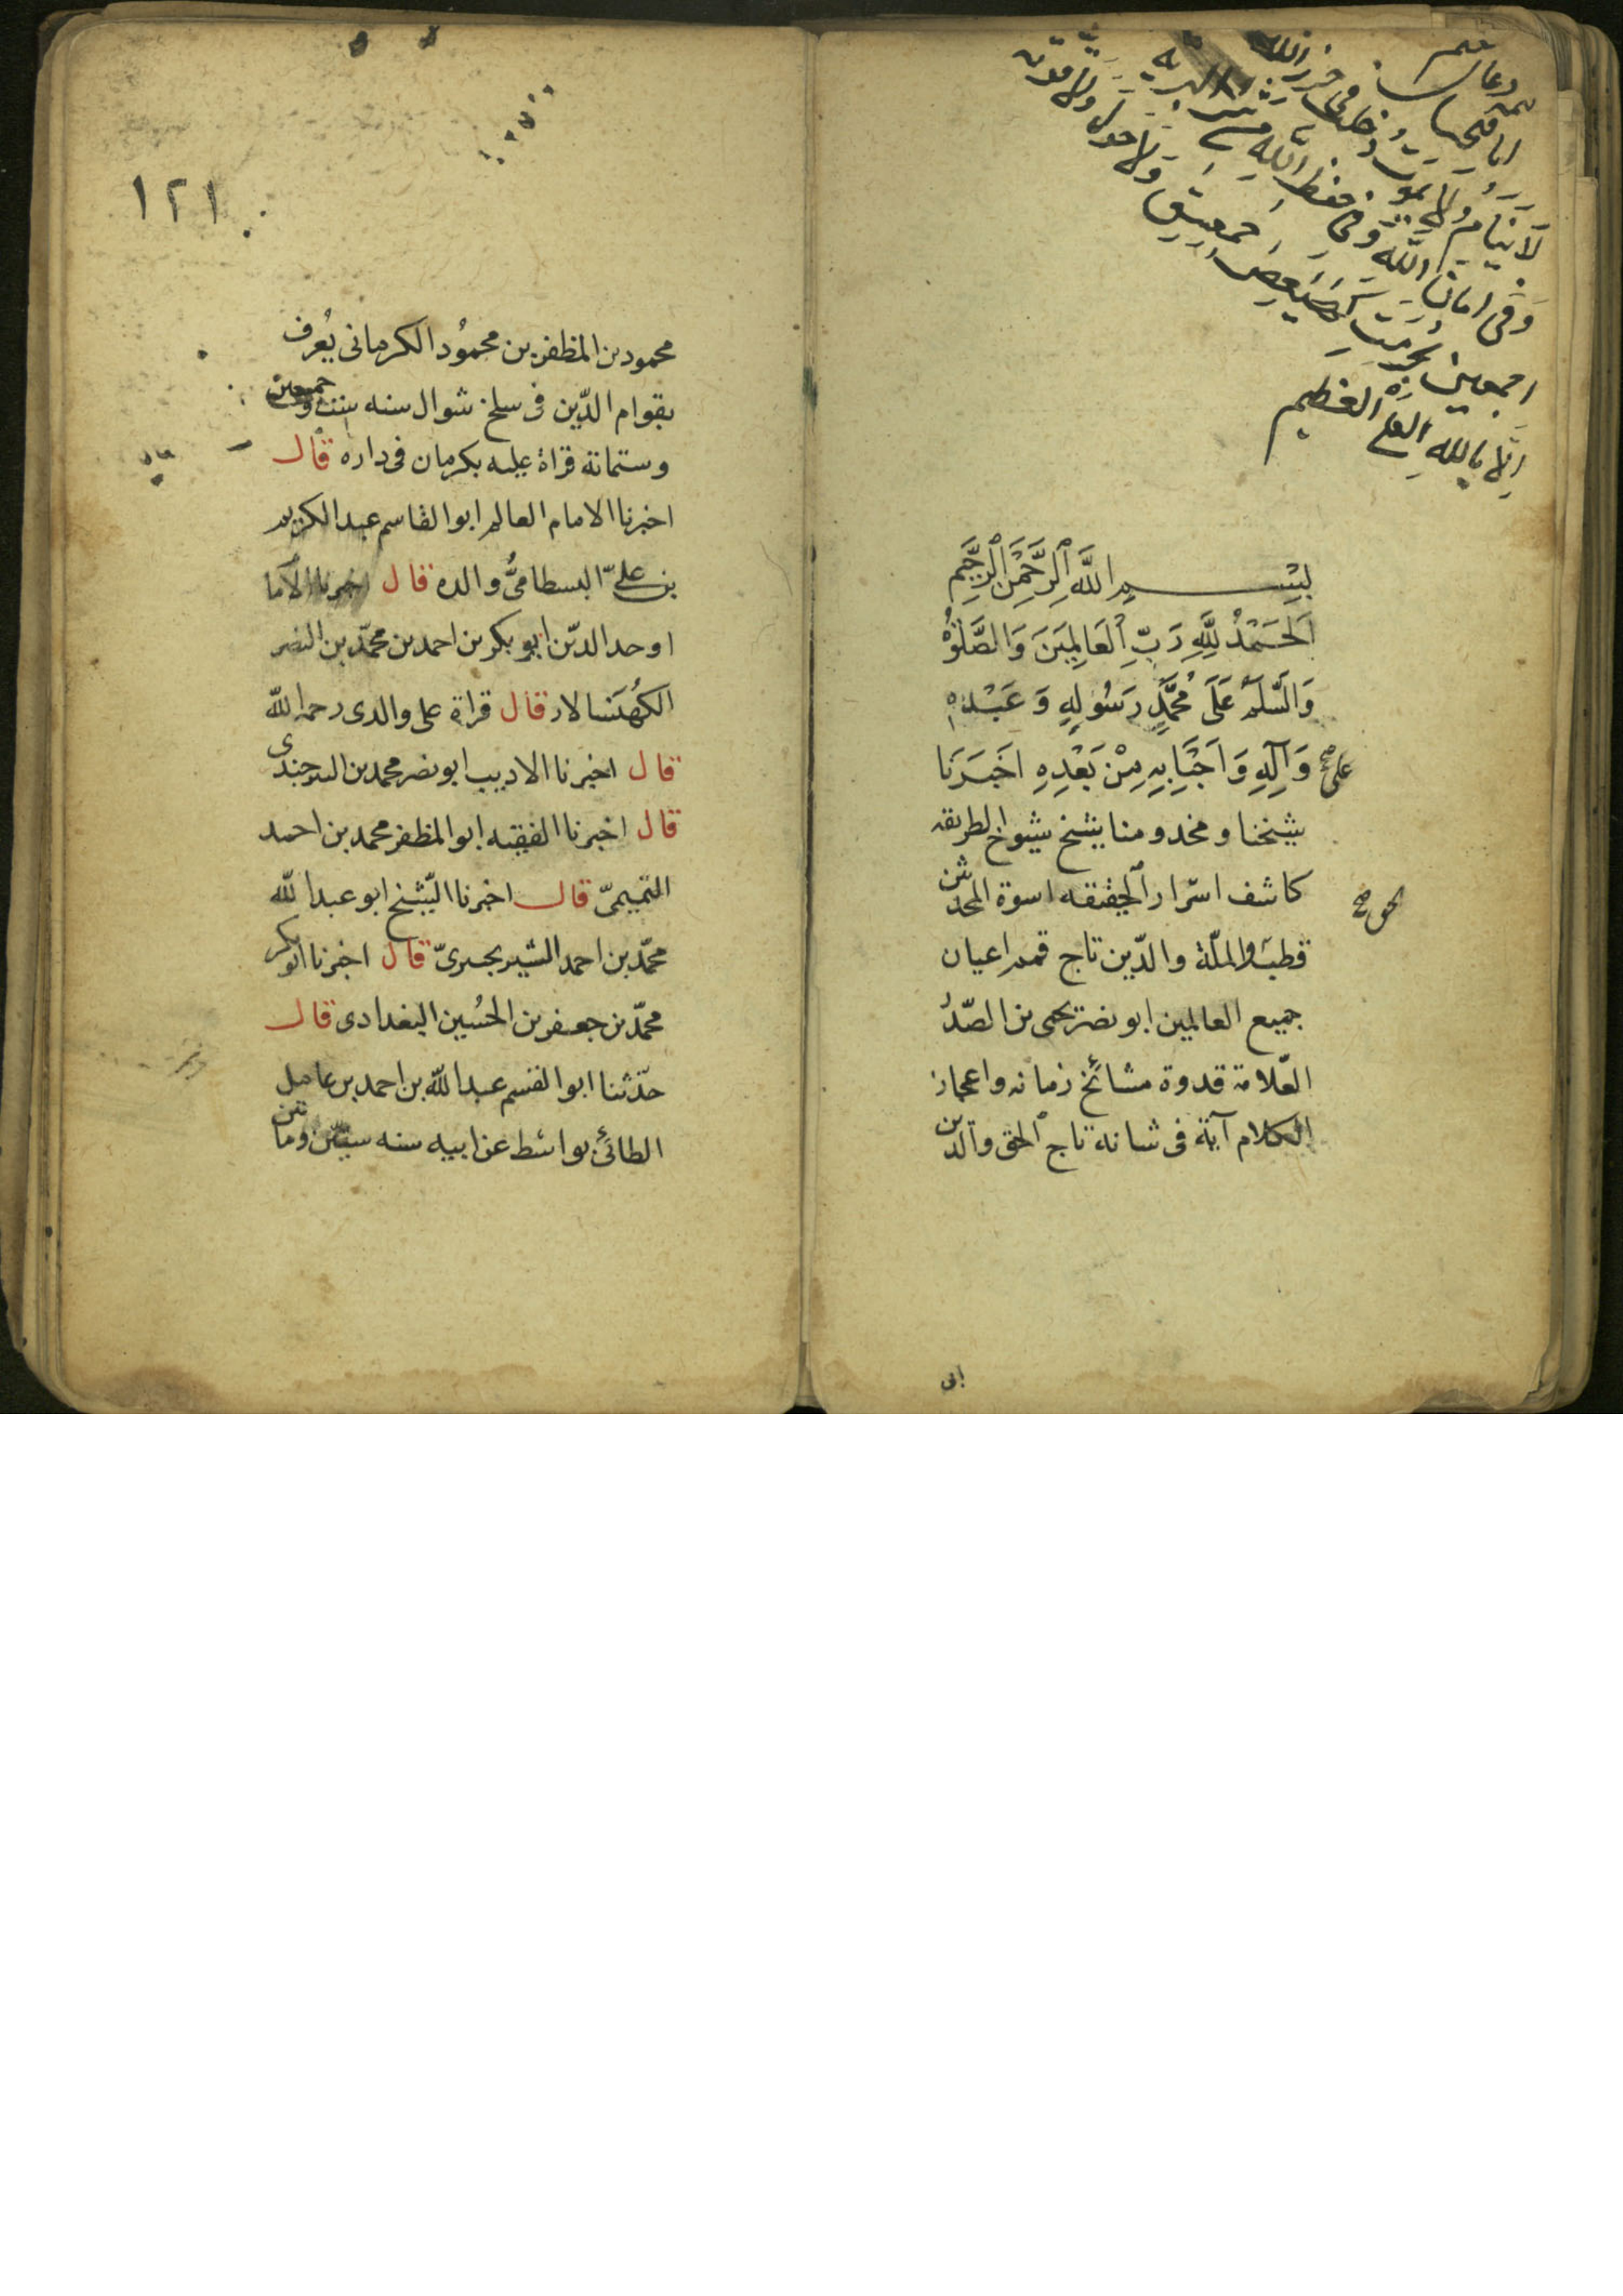 لا ينام ولا يموت دخلت في حرز الله
وفي امان الله وفي حفظ الله من شر البرية
اجمعين بحرمت كهيعص حمعسق ولا حول ولا قوة
الا بالله العلي العظيم
بسم الله الرحمن الرحيم
الحمد لله رب العالمين والصلوة
والسلم على محمد رسوله وعبده
وعلى آله واحبابه من بعده اخبرنا
شيخنا ومخدومنا شيخ شيوخ الطريقه
كاشف اسرار الحقيقه اسوة المحدثين
قطب الحق والملة والدين تاج قمم اعيان
جميع العالمين ابو نصر يحيى بن الصدر
العلامة قدوة مشائخ زمانه واعجاز
الكلام آية في شانه تاج الحق والدين
ابى
١٢١
محمود بن المظفر بن محمود الكرمانى يعرف
بقوام الدين فى سلخ شوال سنه ست وخمسين
وستمائة قراة عليه بكرمان فى داره قال
اخبرنا الامام العالم ابوالقاسم عبدالكريم
بن على البسطامى والده قال اخبرنا الاما
اوحدالدين ابو بكر بن احمد بن محمد بن النضر
الكهنسالار قال قراة على والدى رحمه الله
قال اخبرنا الاديب ابو نصر محمد بن السرجندى
قال اخبرنا الفقيه ابو المظفر محمد بن احمد
التميمى قال اخبرنا الشيخ ابو عبدالله
محمد بن احمد قال اخبرنا ابوبكر
محمد بن جعفر بن الحسين البغدادى قال
حدثنا ابو القسم عبدالله بن احمد بن عامل
الطائى بواسط عن ابيه سنه ستين ومائتين